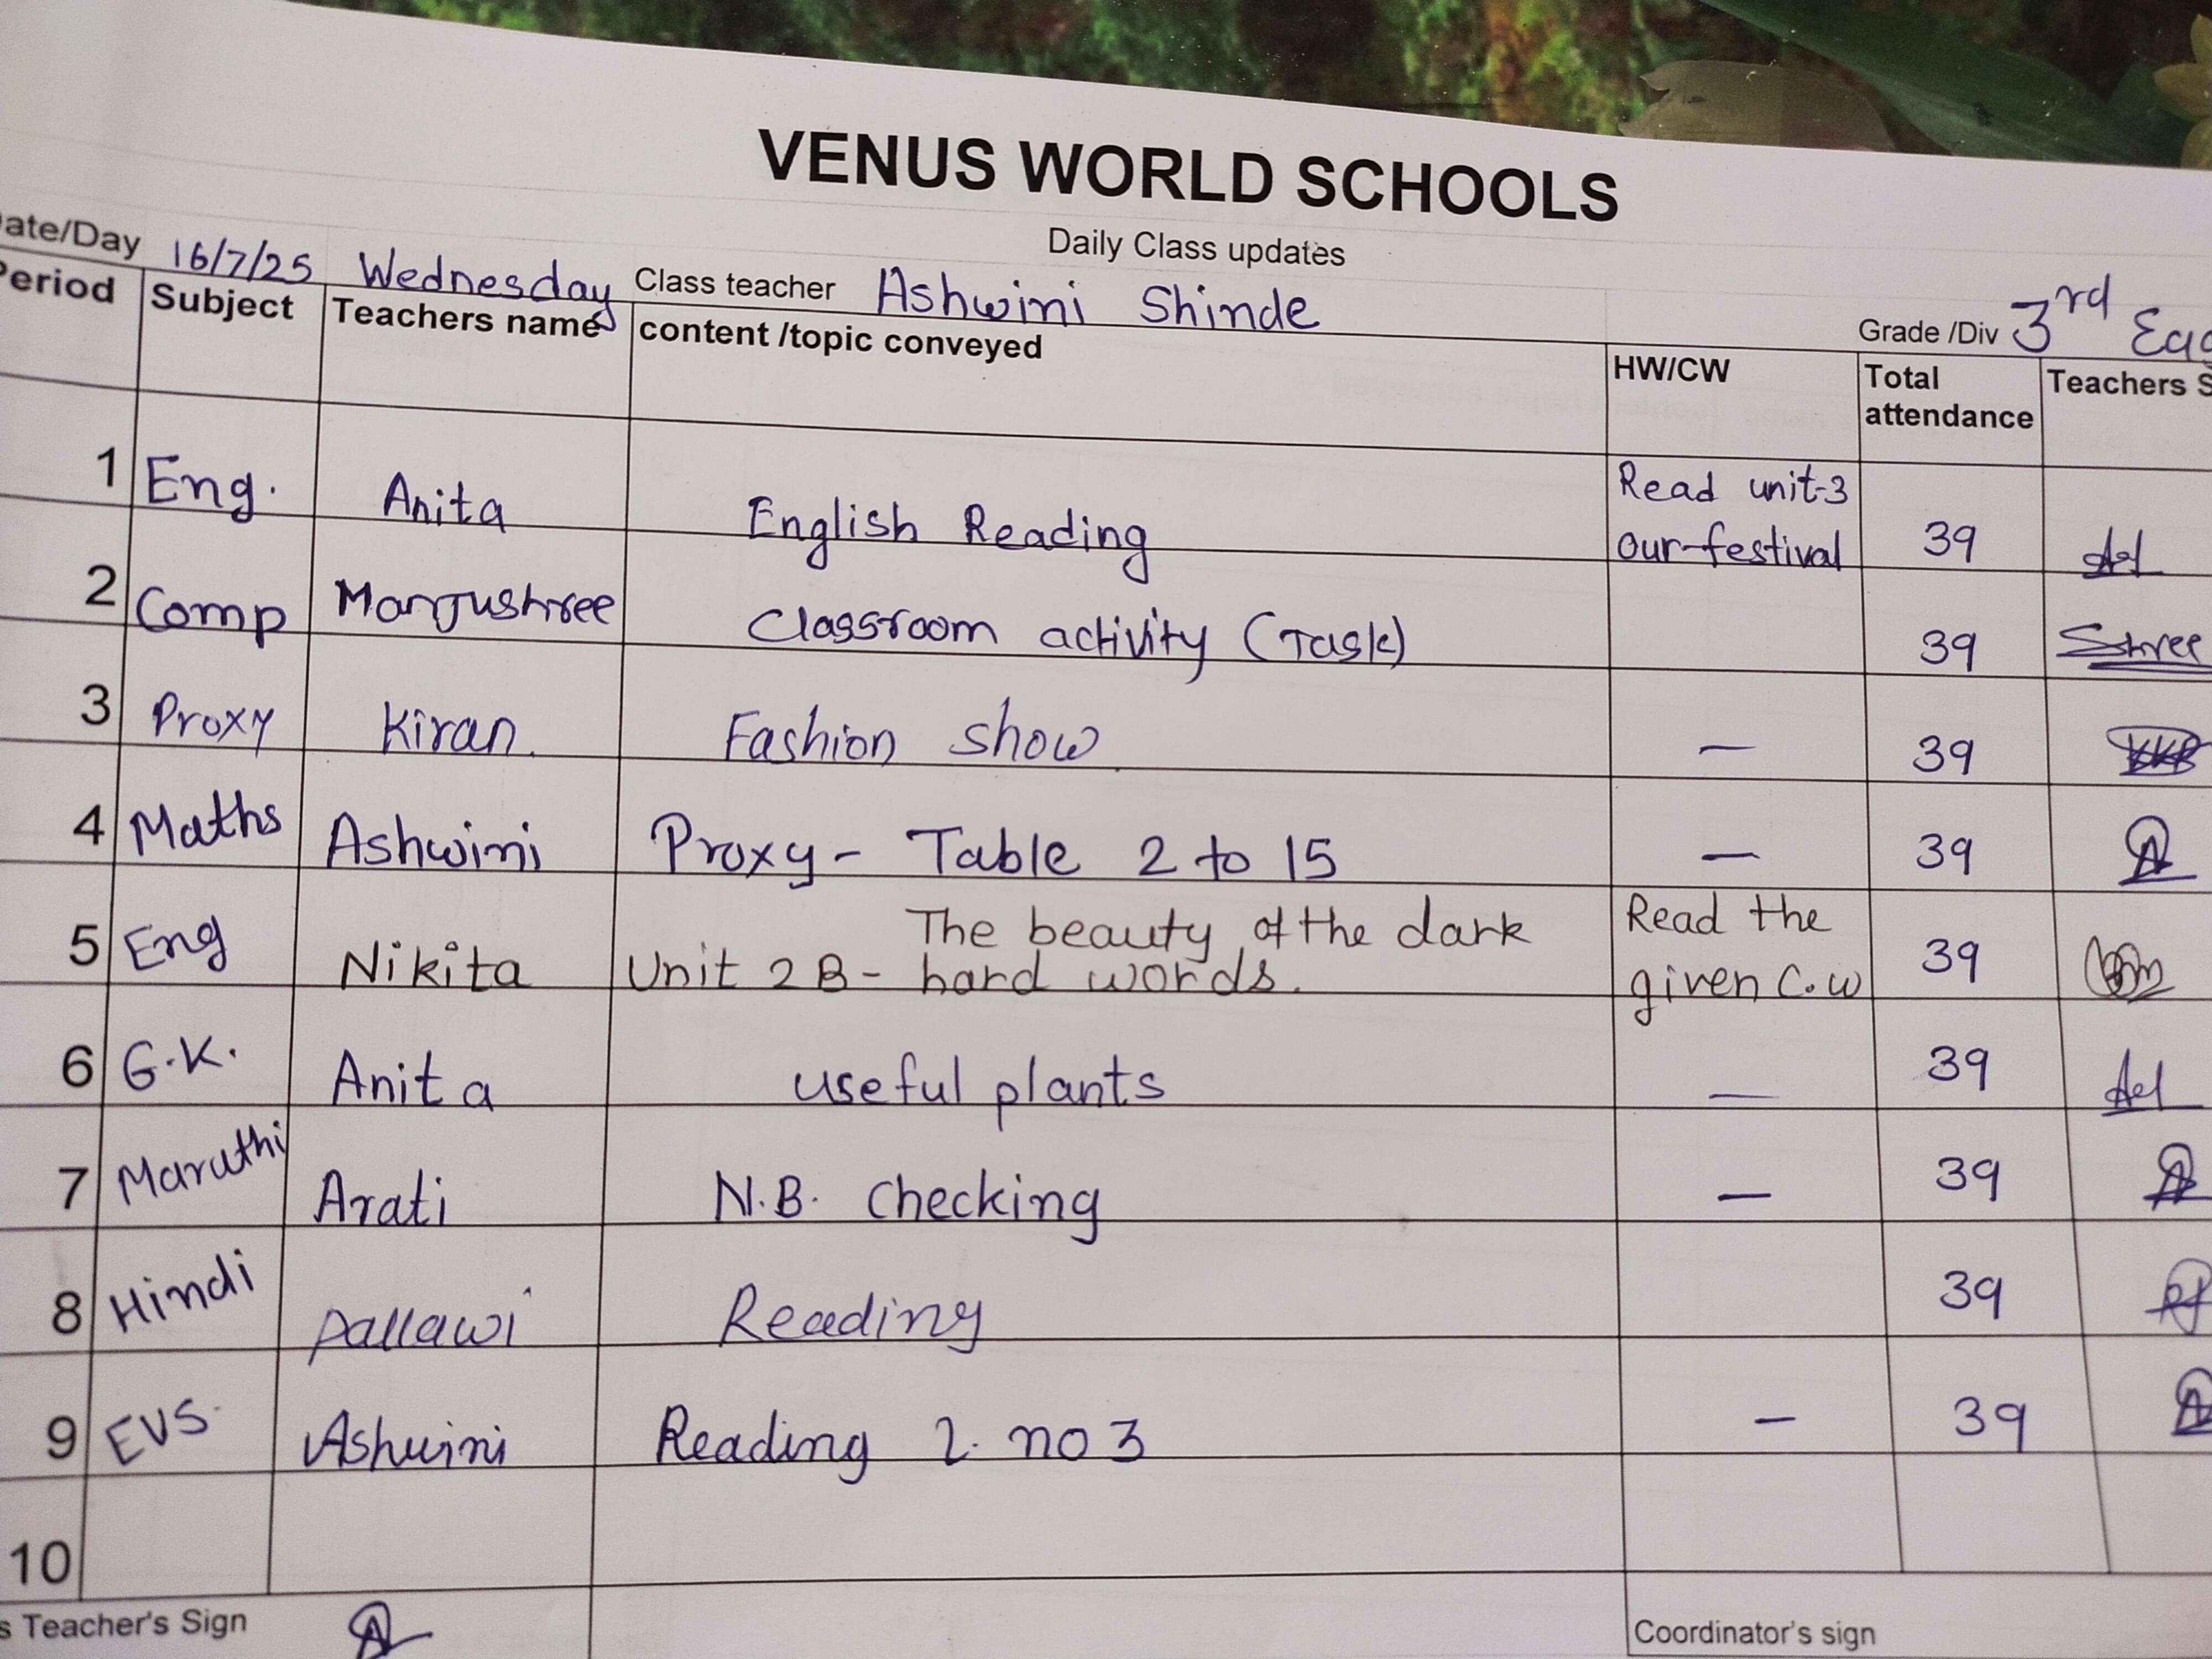 VENUS WORLD SCHOOLS
Daily Class updates
Date/Day 16/7/25 Wednesday Class teacher Ashwini Shinde Grade /Div 3rd
Period Subject Teachers name content /topic conveyed HW/CW Total attendance Teachers S
1 Eng. Anita English Reading Read unit-3 our-festival 39
2 Comp Manjushree Classroom activity (Task) 39 Shree
3 Proxy Kiran. Fashion show — 39
4 Maths Ashwini Proxy - Table 2 to 15 — 39
5 Eng Nikita Unit 2 B - The beauty of the dark hard words. Read the given C.w 39
6 G.K. Anita useful plants — 39
7 Marathi Arati N.B. checking — 39
8 Hindi Pallawi Reading 39
9 EVS. Ashwini Reading 2. no 3 — 39
10
s Teacher's Sign Coordinator's sign